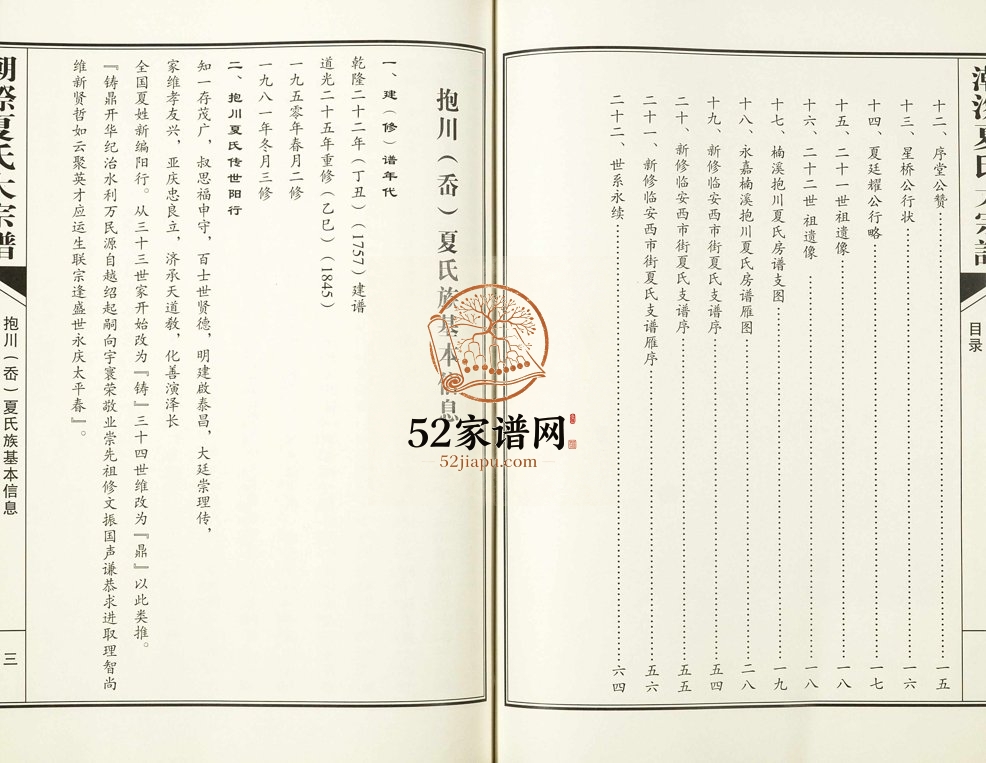 目录
十二、序堂公赞……一五
十三、星桥公行状……一六
十四、夏廷耀公行略……一七
十五、二十一世祖遗像……一八
十六、二十二世祖遗像……一八
十七、楠溪抱川夏氏房谱支图……一九
十八、永嘉楠溪抱川夏氏房谱雁图……二八
十九、新修临安西市街夏氏支谱序……五四
二十、新修临安西市街夏氏支谱序……五五
二十一、新修临安西市街夏氏支谱雁序……五六
二十二、世系永续……六四
抱川（岙）夏氏族基本信息
一、建（修）谱年代
乾隆二十二年（丁丑）（1757）建谱
道光二十五年重修（乙巳）（1845）
一九五零年春月二修
一九八一年冬月三修
二、抱川夏氏传世阳行
知一存茂广，叔思福申守，百士世贤德，明建啟泰昌，大廷崇理传，
家维孝友兴，亚庆忠良立，济承天道教，化善演泽长
全国夏姓新编阳行。从三十三世家开始改为『铸』三十四世维改为『鼎』以此类推。
『铸鼎开华纪治水利万民源自越绍起嗣向宇寰荣敬业崇先祖修文振国声谦恭求进取理智尚
维新贤哲如云聚英才应运生联宗逢盛世永庆太平春』。
夏氏大宗谱
抱川（岙）夏氏族基本信息
三
52家谱网
52jiapu.com